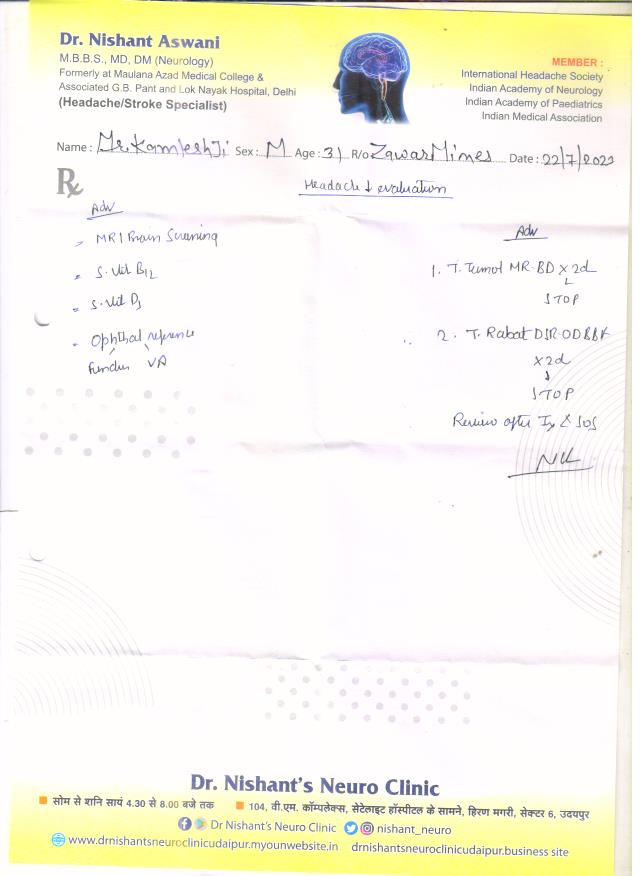 Dr. Nishant Aswani
M.B.B.S., MD, DM (Neurology)
Formerly at Maulana Azad Medical College &
Associated G.B. Pant and Lok Nayak Hospital, Delhi
(Headache/Stroke Specialist)
MEMBER :
International Headache Society
Indian Academy of Neurology
Indian Academy of Paediatrics
Indian Medical Association
Name : Mr. Kamlesh Ji Sex : M Age : 31 R/o Zawar Mines Date : 22/7/2023
Rx
Headache ↓ evaluation
Adv
- MRI Brain Screening
- S. Vit B12
- S. Vit D3
- Ophthal reference
Fundus VA
Adv
1. T. Tumol MR-BD x 2d
↓
STOP
2. T. Rabat DSR-OD BBF
x 2d
↓
STOP
Review after Ix & SOS
Dr. Nishant's Neuro Clinic
सोम से शनि सायं 4.30 से 8.00 बजे तक
104, वी.एम. कॉम्पलेक्स, सेटेलाइट हॉस्पीटल के सामने, हिरण मगरी, सेक्टर 6, उदयपुर
Dr Nishant's Neuro Clinic nishant_neuro
www.drnishantsneuroclinicudaipur.myownwebsite.in drnishantsneuroclinicudaipur.business site